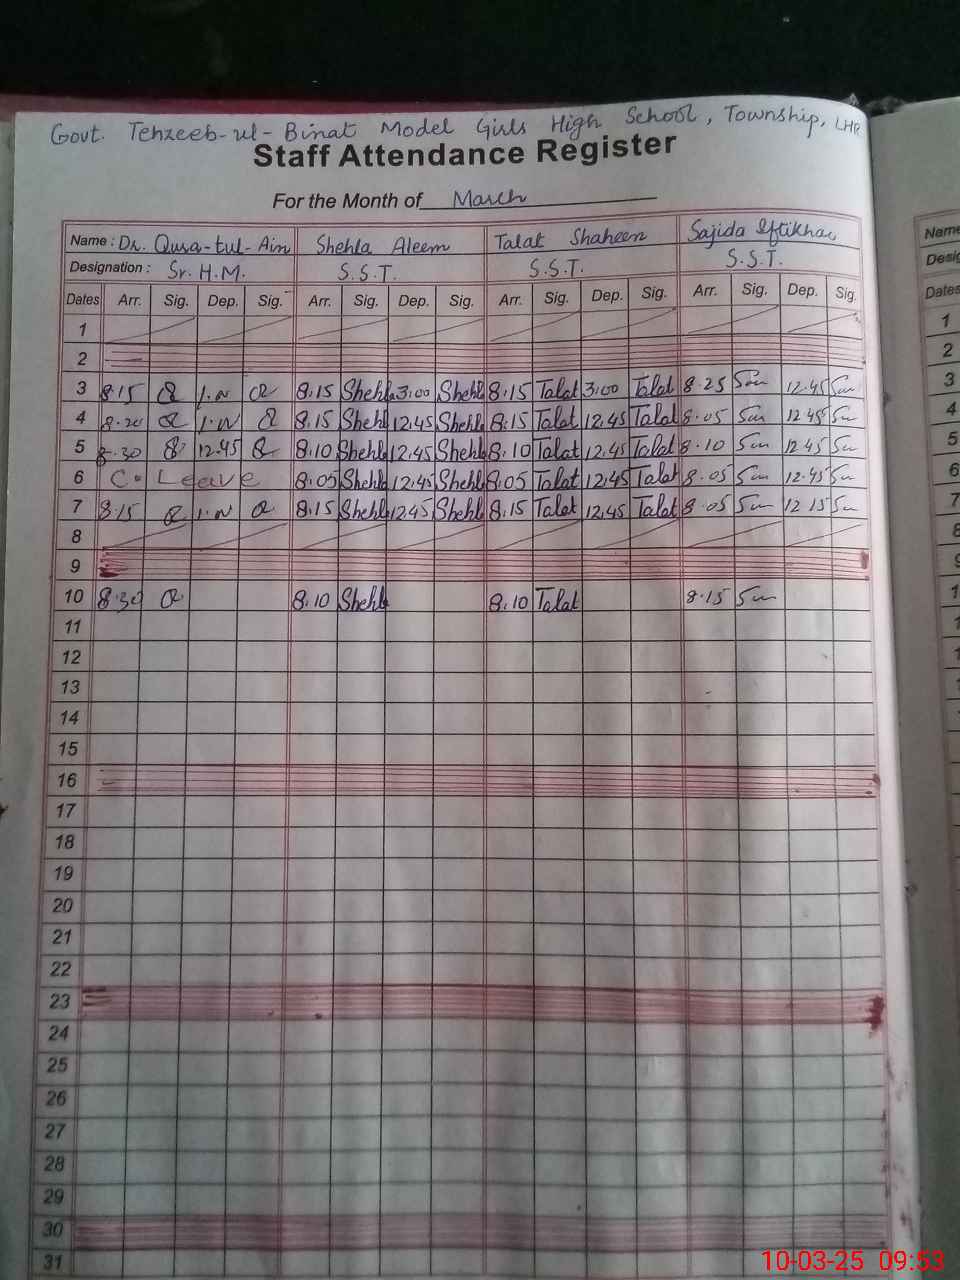 Govt. Tehzeeb-ul-Binat Model Girls High School, Township, LHR
Staff Attendance Register
For the Month of March
Name : Dr. Qura-tul-Ain Shehla Aleem Talat Shaheen Sajida Iftikhar
Designation : Sr. H.M. S.S.T. S.S.T. S.S.T.
Dates Arr. Sig. Dep. Sig. Arr. Sig. Dep. Sig. Arr. Sig. Dep. Sig. Arr. Sig. Dep. Sig.
1
2
3 8.15 8.15 Shehla 3.00 Shehla 8.15 Talat 3.00 Talat 8.25 12.45
4 8.20 8.15 Shehla 12.45 Shehla 8.15 Talat 12.45 Talat 8.05 12.45
5 8.30 12.45 8.10 Shehla 12.45 Shehla 8.10 Talat 12.45 Talat 8.10 12.45
6 C. Leave 8.05 Shehla 12.45 Shehla 8.05 Talat 12.45 Talat 8.05 12.45
7 8.15 8.15 Shehla 12.45 Shehla 8.15 Talat 12.45 Talat 8.05 12.15
8
9
10 8.30 8.10 Shehla 8.10 Talat 8.15
11
12
13
14
15
16
17
18
19
20
21
22
23
24
25
26
27
28
29
30
31
Name
Desig
Dates
1
2
3
4
5
6
7
8
10-03-25 09:53